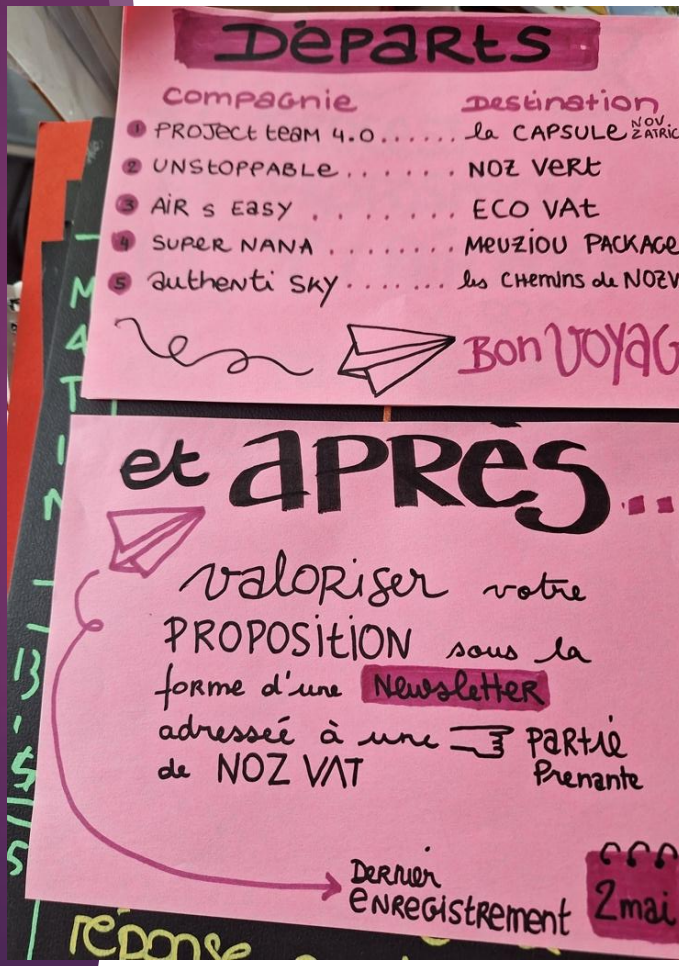 DÉPARTS
Compagnie Destination
1 PROJECT teAM 4.0...... la CAPSULE NOV. ZATRIC
2 UNSTOPPABLE....... NOZ VERT
3 AIR s EASY ........ ECO VAt
4 SUPER NANA ........ MEUZIOU PACKAGE
5 authenti SKY ....... les CHEMINS de NOZV
Bon VOYAG
et APRÈS...
valoriser votre
PROPOSITION sous la
forme d'une Newsletter
adressée à une PARTIE
de NOZ VAT Prenante
DERNIER
ENREGISTREMENT 2 mai
M
A
T
I
N
réponse